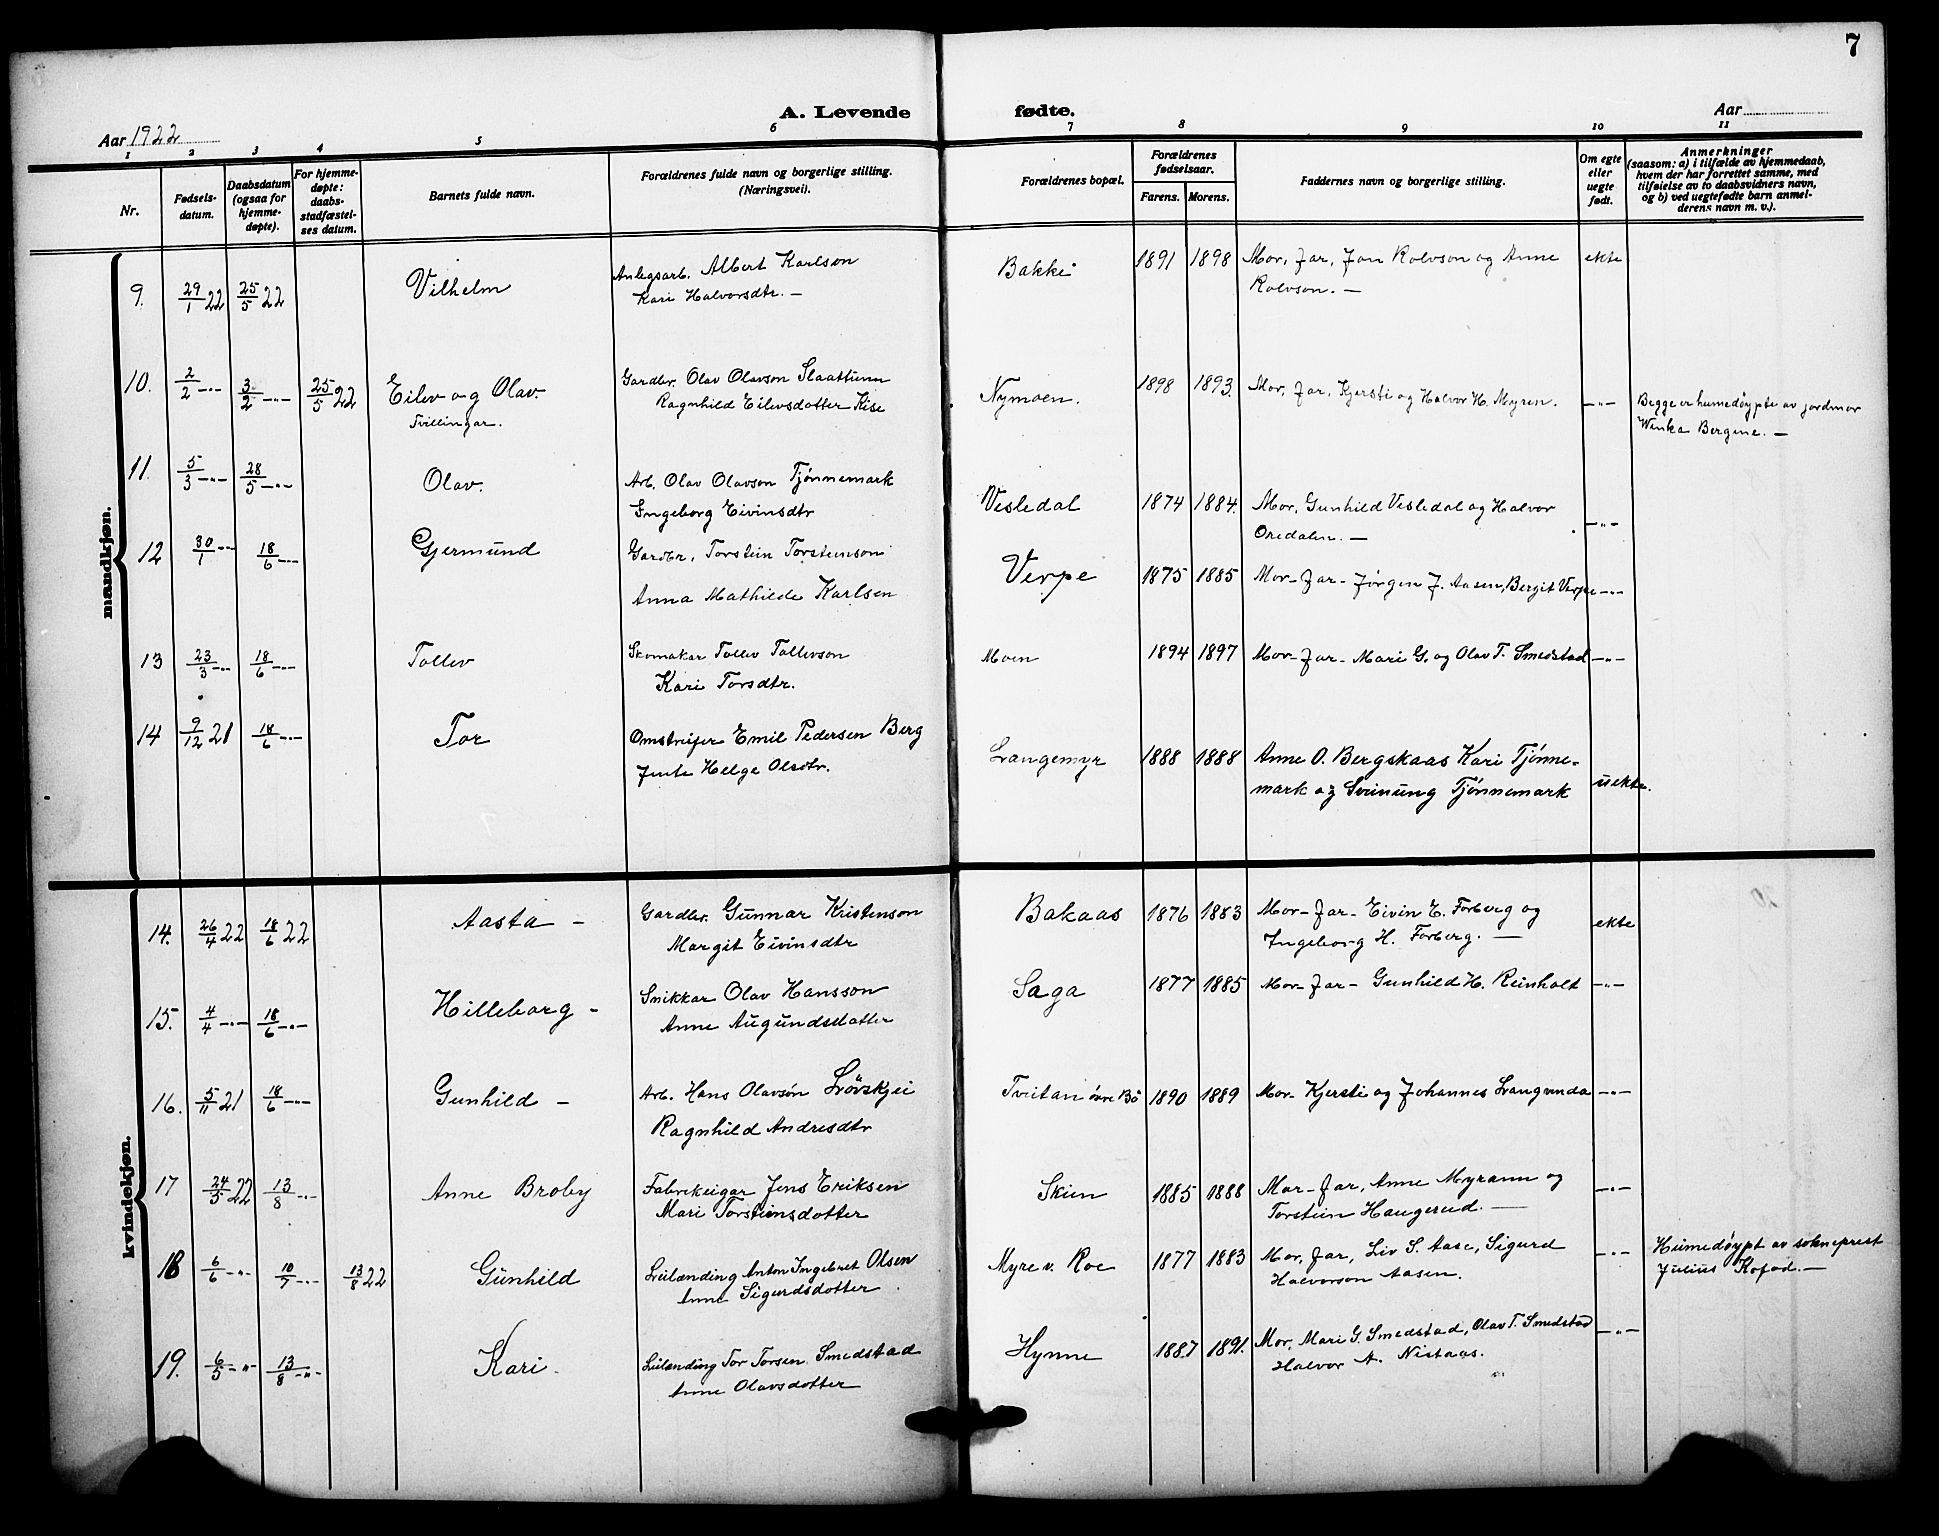 7
A. Levende fødte.
Aar 1922
Aar
1 2 3 4 5 6 7 8 9 10 11
Nr.
Fødsels-
datum.
Daabsdatum
(ogsaa for
hjemme-
døpte).
For hjemme-
døpte:
daabs-
stadfæstel-
ses datum.
Barnets fulde navn.
Forældrenes fulde navn og borgerlige stilling.
(Næringsvei).
Forældrenes bopæl.
Forældrenes
fødselsaar.
Farens. Morens.
Faddernes navn og borgerlige stilling.
Om egte
eller
uegte
født.
Anmerkninger
(saasom: a) i tilfælde av hjemmedaab,
hvem der har forrettet samme, med
tilføielse av to daabsvidners navn,
og b) ved uegtefødte barn anmel-
derens navn m. v.).
mandkjøn.
9. 29/1 22 25/5 22 Vilhelm Anlegsarb. Albert Karlson Bakke 1891 1898 Mor, Far, Jon Rolvson og Anne ekte
Kari Halvorsdtr. — Rolvson. —
10. 2/2 -"- 3/2 -"- 25/5 22 Eilev og Olav. Gardbr. Olav Olavson Slaattunn Nymoen. 1898 1893. Mor, Far, Kjersti og Halvor H. Myren. -"- Begge er heimedøypte av jordmor
Tvillingar. Ragnhild Eilevsdotter Kise Bergene. —
11. 5/3 -"- 28/5 -"- Olav. Arb. Olav Olavson Tjønnemark Vesledal 1874 1884. Mor, Gunhild Vesledal og Halvor -"-
Ingeborg Eivinsdtr Oredalen. —
12 30/1 -"- 18/6 -"- Gjermund Gardbr. Torstein Torsteinson Verpe 1875 1885 Mor - Far - Jørgen J. Aasen, Bergit Verpe -"-
Anna Mathilde Karlsen
13 23/3 -"- 18/6 -"- Tollev Skomakar Tollev Tollevson Moen 1894 1897 Mor - Far - Mari G. og Olav T. Smedstad -"-
Kari Torsdtr.
14 9/12 21 18/6 -"- Tor Omstreifer Emil Pedersen Berg Langemyr 1888 1888 Anne O. Bergskaas Kari Tjønne- uekte.
Jente Helge Olsdtr. mark og Sveinung Tjønnemark
kvindekjøn.
14. 26/4 22 18/6 22 Aasta - Gardbr. Gunnar Kristenson Bakaas 1876 1883 Mor - Far - Eivin E. Forberg og ekte
Margit Eivinsdtr Ingeborg H. Forberg. —
15. 4/4 -"- 18/6 -"- Hilleborg - Snikkar Olav Hansson Saga 1877 1885 Mor - Far - Gunhild H. Reinholt -"-
Anne Augundsdotter
16. 5/11 21 18/6 -"- Gunhild - Arb. Hans Olavsøn Lövskjei Tveitan øvre Bö 1890 1889 Mor - Kjersti og Johannes -"-
Ragnhild Andresdtr
17 24/5 22 13/8 -"- Anne Broby Fabrikeigar Jens Eriksen Skien 1885 1888 Mor - Far, Anne Myrann og -"-
Mari Torsteinsdotter Torstein Haugerud. —
18 6/6 -"- 10/7 -"- 13/8 22 Gunhild Leilænding Anton Ingebret Olsen Myre v. Roe 1877 1883 Mor, Far, Liv S. Aase, Sigurd -"- Heimedøypt av sokneprest
Anne Sigurdsdotter Halvorson Aasen. Julius Kofod. —
19. 6/5 -"- 13/8 -"- Kari. Leilænding Tor Torsen Smedstad Hynne 1887 1891. Mor, Mari G. Smedstad, Olav T. Smedstad -"-
Anne Olavsdotter Halvor A. Nistaas.